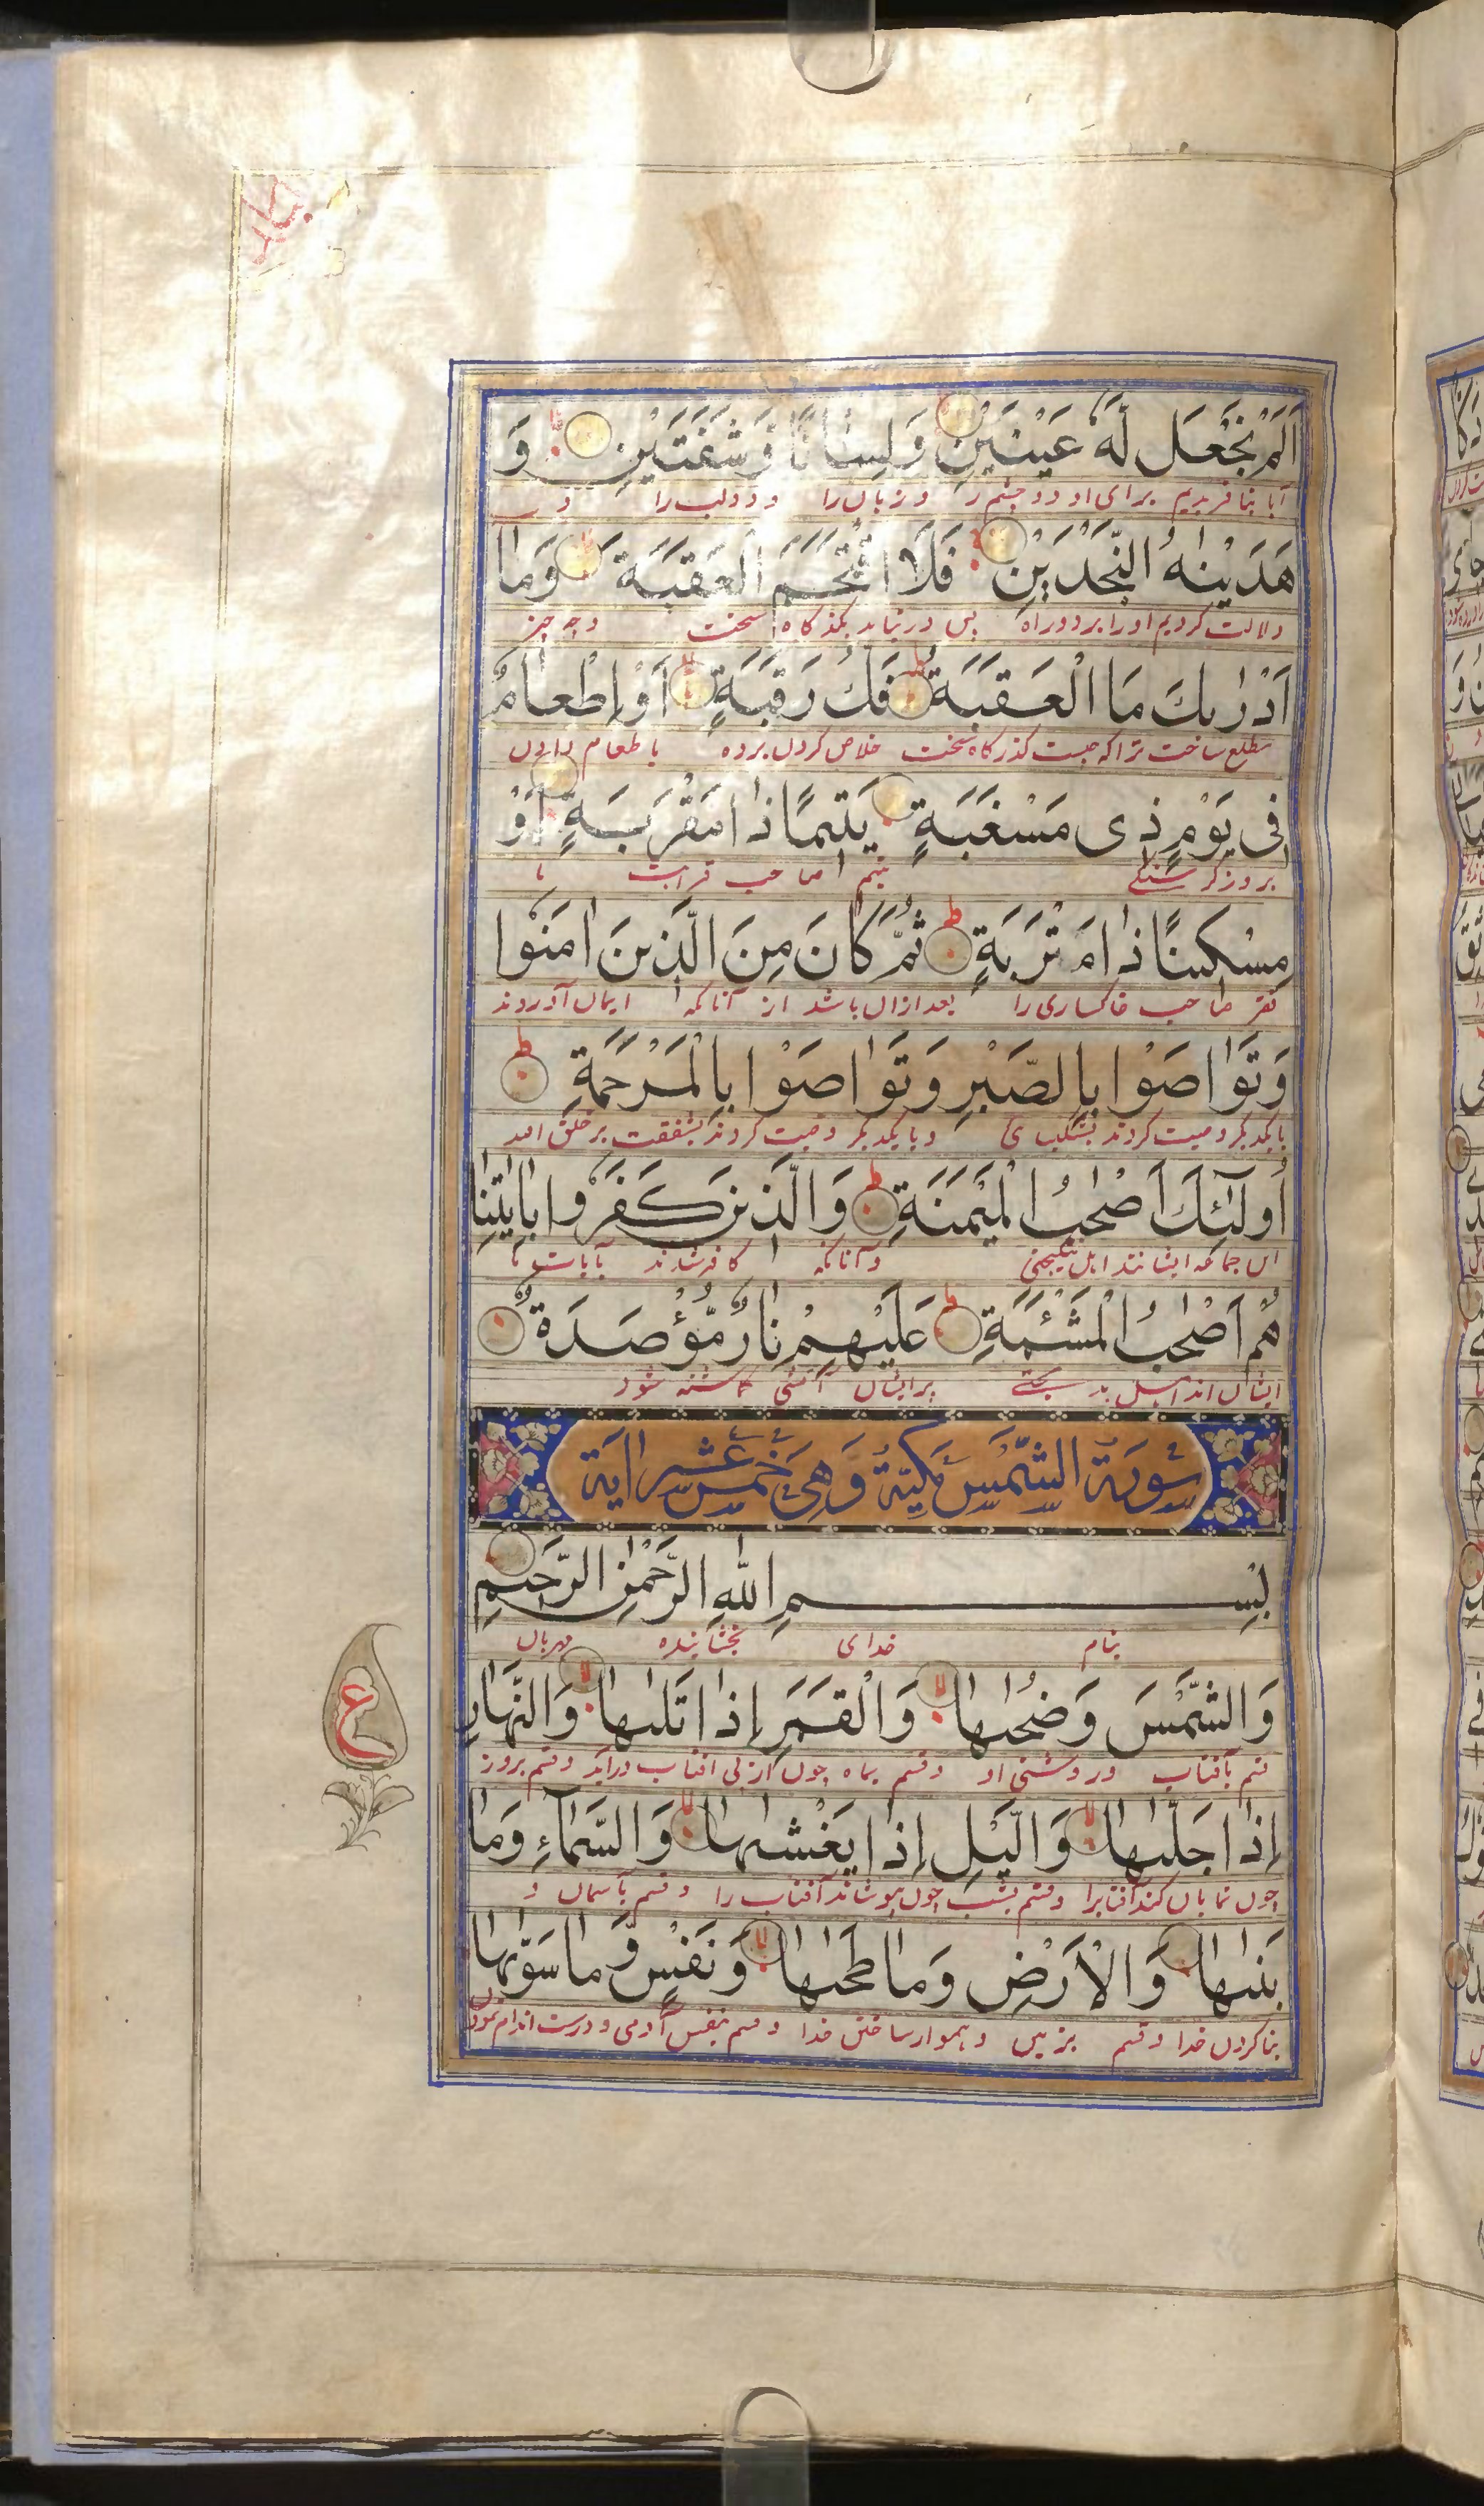 اَلَمْ نَجْعَل لَّهٗ عَيْنَيْنِ وَلِسَانًا وَّشَفَتَيْنِ وَ
آیا نیافریدیم برای او دو چشم را و زبان را و دو لب را و
هَدَيْنٰهُ النَّجْدَيْنِ فَلَا اقْتَحَمَ الْعَقَبَةَ وَمَا
دلالت کردیم او را بر دو راه پس در نیاید بگذرگاه سخت و چه چیز
اَدْرٰىكَ مَا الْعَقَبَةُ فَكُّ رَقَبَةٍ اَوْ اِطْعَامٌ
مطلع ساخت ترا که چیست گذرگاه سخت خلاص کردن برده یا طعام دادن
فِى يَوْمٍ ذِى مَسْغَبَةٍ يَتِيمًا ذَا مَقْرَبَةٍ اَوْ
بروز گرسنگی یتیم صاحب قرابت یا
مِسْكِينًا ذَا مَتْرَبَةٍ ثُمَّ كَانَ مِنَ الَّذِينَ اٰمَنُوا
فقیر صاحب خاکساری را بعد ازان باشد از آنانکه ایمان آوردند
وَتَوَاصَوْا بِالصَّبْرِ وَتَوَاصَوْا بِالْمَرْحَمَةِ
با یکدیگر وصیت کردند بشکیبائی و با یکدیگر وصیت کردند بشفقت بر خلق الله
اُولٰٓئِكَ اَصْحٰبُ الْمَيْمَنَةِ وَالَّذِينَ كَفَرُوا بِاٰيٰتِنَا
این جماعه ایشانند اهل نیکبختی و آنانکه کافر شدند بآیات ما
هُمْ اَصْحٰبُ الْمَشْئَمَةِ عَلَيْهِمْ نَارٌ مُّؤْصَدَةٌ
ایشان اند اهل بدبختی بر ایشان آتشی گماشته شود
سُورَةُ الشَّمْسِ مَكِّيَّةٌ وَهِىَ خَمْسَ عَشَرَ اٰيَة
بِسْمِ اللّٰهِ الرَّحْمٰنِ الرَّحِيمِ
بنام خدای بخشاینده مهربان
وَالشَّمْسِ وَضُحٰىهَا وَالْقَمَرِ اِذَا تَلٰىهَا وَالنَّهَارِ
قسم بآفتاب و روشنی او و قسم بماه چون از پی آفتاب درآید و قسم بروز
ع
اِذَا جَلّٰىهَا وَالَّيْلِ اِذَا يَغْشٰىهَا وَالسَّمَآءِ وَمَا
چون نمایان کند آفتابرا و قسم بشب چون بپوشاند آفتاب را و قسم بآسمان و
بَنٰىهَا وَالْاَرْضِ وَمَا طَحٰىهَا وَنَفْسٍ وَّمَا سَوّٰىهَا
بنا کردن خدا و قسم بزمین و هموار ساختن خدا و قسم بنفس آدمی و درست اندام نمودن